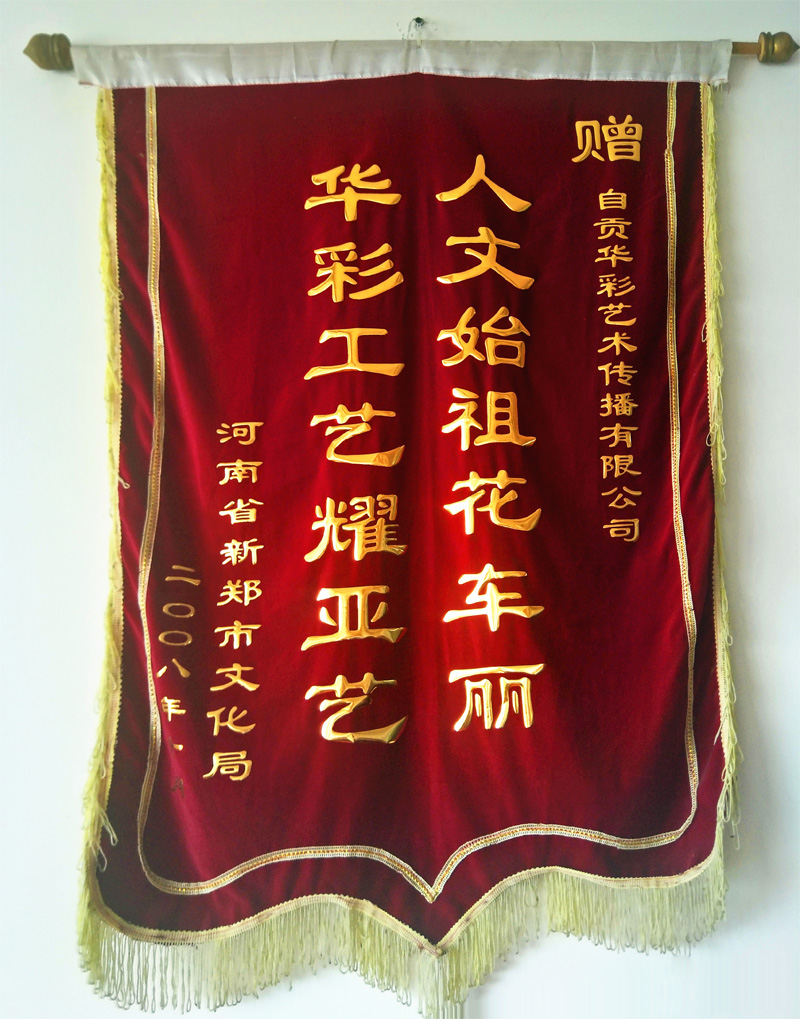 赠
自贡华彩艺术传播有限公司
人文始祖花车丽
华彩工艺耀亚艺
河南省新郑市文化局
二〇〇八年